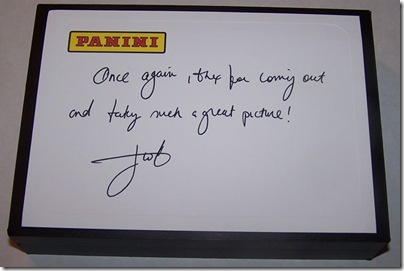 PANINI
Once again, thx for coming out
and taking such a great picture!